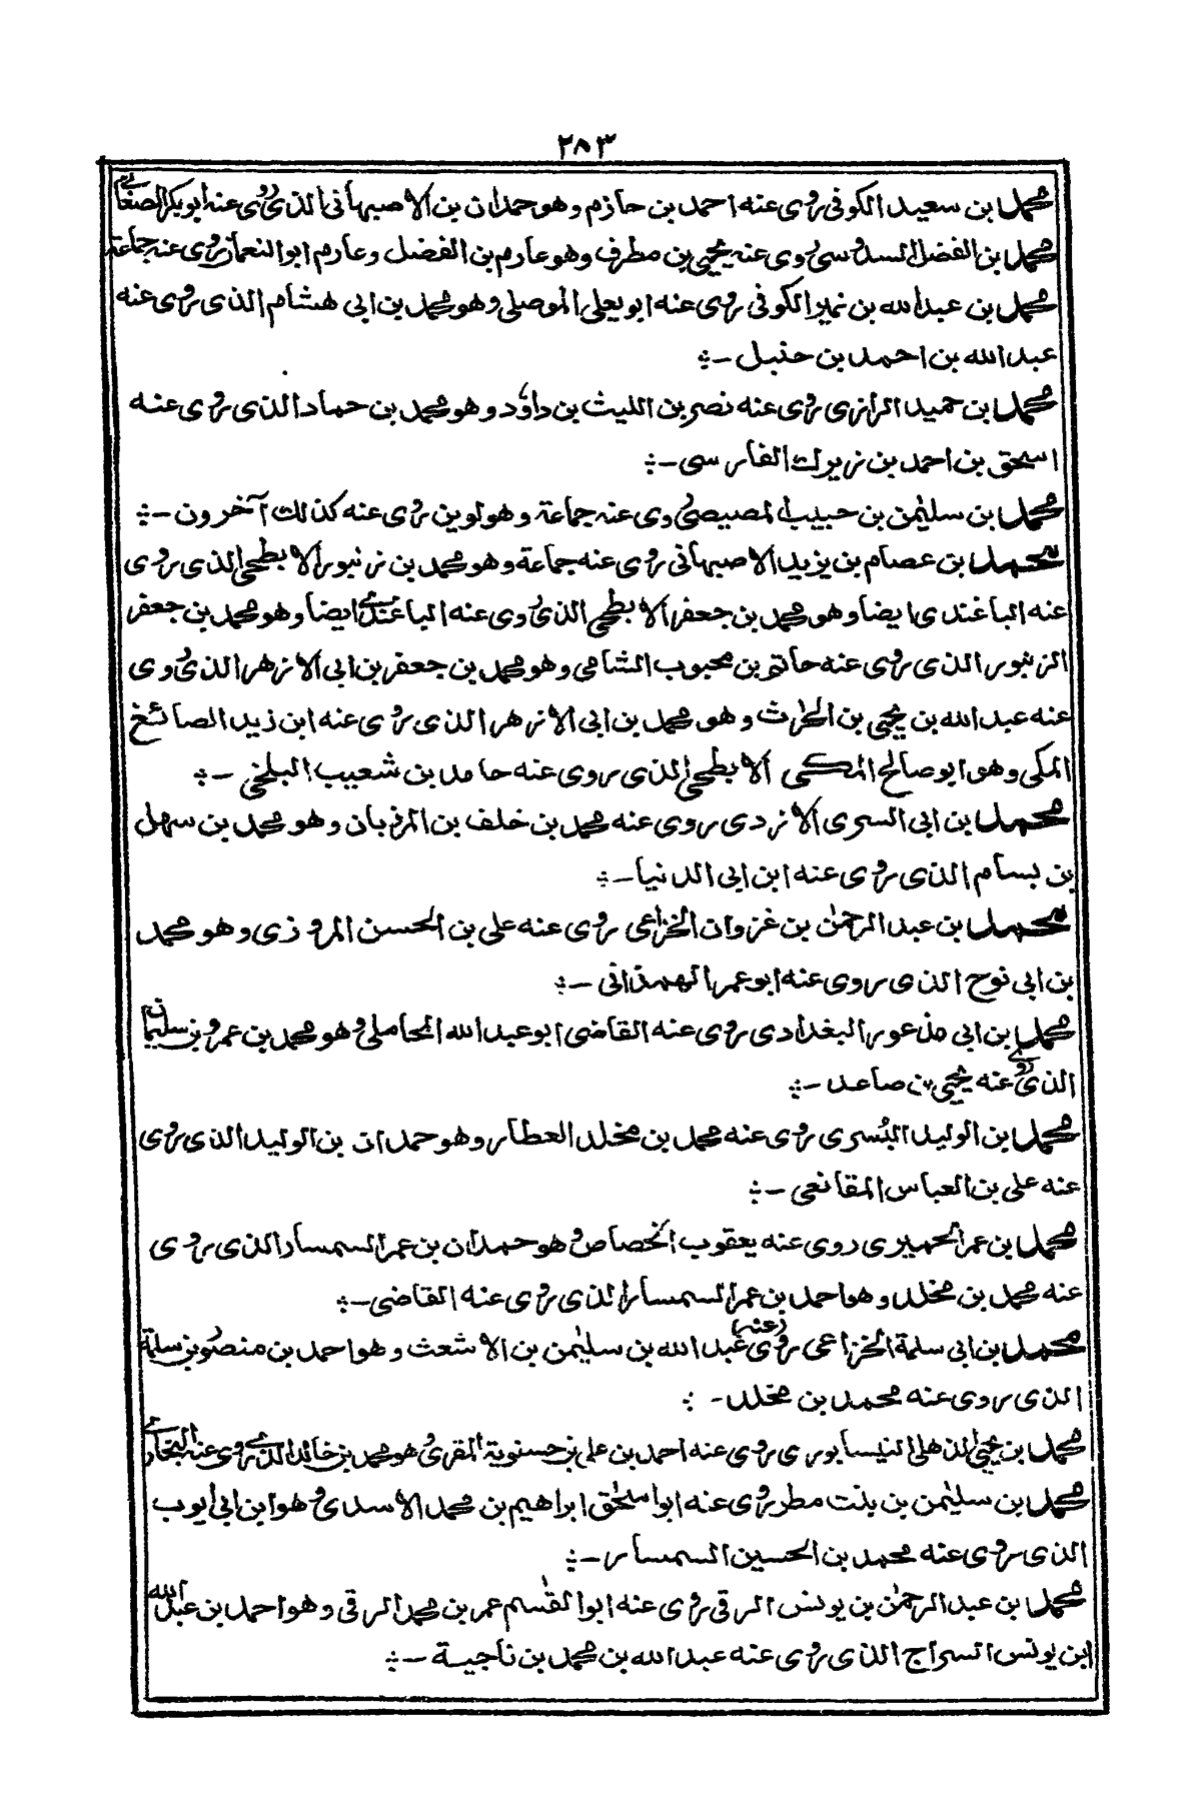 ٢٨٣
محمد بن سعيد الكوفى روى عنه احمد بن حازم وهو حمدان بن الاصبهانى الذى روى عنه ابوبكر الصغانى
محمد بن الفضل السدوسى روى عنه يحيى بن مطرف وهو عارم بن الفضل وعارم ابو النعمان روى عنه جماعة
محمد بن عبدالله بن نمير الكوفى روى عنه ابو يعلى الموصلى وهو محمد بن ابى هشام الذى روى عنه
عبدالله بن احمد بن حنبل -؞
محمد بن حميد الرازى روى عنه نصر بن الليث بن داؤد وهو محمد بن حماد الذى روى عنه
اسحق بن احمد بن زيرك الفارسى -؞
محمد بن سليمٰن بن حبيب المصيصى روى عنه جماعة وهو لوين روى عنه كذلك آخرون -؞
محمد بن عصام بن يزيد الاصبهانى روى عنه جماعة وهو محمد بن زنبور الابطحى الذى روى
عنه الباغندى ايضا وهو محمد بن جعفر الابطحى الذى روى عنه الباغندى ايضا وهو محمد بن جعفر
الزنبور الذى روى عنه حاتم بن محبوب الشامى وهو محمد بن جعفر بن ابى الازهر الذى روى
عنه عبدالله بن يحيى بن الحٰرث وهو محمد بن ابى الازهر الذى روى عنه ابن زيد الصائغ
المكى وهو ابو صالح المكى الابطحى الذى روى عنه حامد بن شعيب البلخى -؞
محمد بن ابى السرى الازدى روى عنه محمد بن خلف بن المرزبان وهو محمد بن سهل
بن بسام الذى روى عنه ابن ابى الدنيا -؞
محمد بن عبد الرحمٰن بن غزوان الخزاعى روى عنه على بن الحسن المروذى وهو محمد
بن ابى نوح الذى روى عنه ابو عمر الهمذانى -؞
محمد بن ابى مذعور البغدادى روى عنه القاضى ابو عبدالله المحاملى وهو محمد بن عمرو بن سليمان
الذى روى عنه يحيى بن صاعد -؞
محمد بن الوليد البُسرى روى عنه محمد بن مخلد العطار وهو حمدان بن الوليد الذى روى
عنه على بن العباس المقانعى -؞
محمد بن عمر الحميرى روى عنه يعقوب الخصاص وهو حمدان بن عمر السمسار الذى روى
عنه محمد بن مخلد وهو احمد بن عمر السمسار الذى روى عنه القاضى -؞
محمد بن ابى سلمة الخزاعى روى (عنه) عبدالله بن سليمٰن بن الاشعث وهو احمد بن منصور بن سلمة
الذى روى عنه محمد بن مخلد - ؞
محمد بن يحيى الذهلى النيسابورى روى عنه احمد بن على بن حسنوية المقرى وهو محمد بن خالد الذى روى عنه البخارى
محمد بن سليمٰن بن بنت مطر روى عنه ابو اسحٰق ابراهيم بن محمد الاسدى وهو ابن ابى ايوب
الذى روى عنه محمد بن الحسين السمسار -؞
محمد بن عبد الرحمٰن بن يونس الرقى روى عنه ابو القٰسم عمر بن محمد الرقى وهو احمد بن عبد الله
ابن يونس السراج الذى روى عنه عبدالله بن محمد بن ناجية -؞